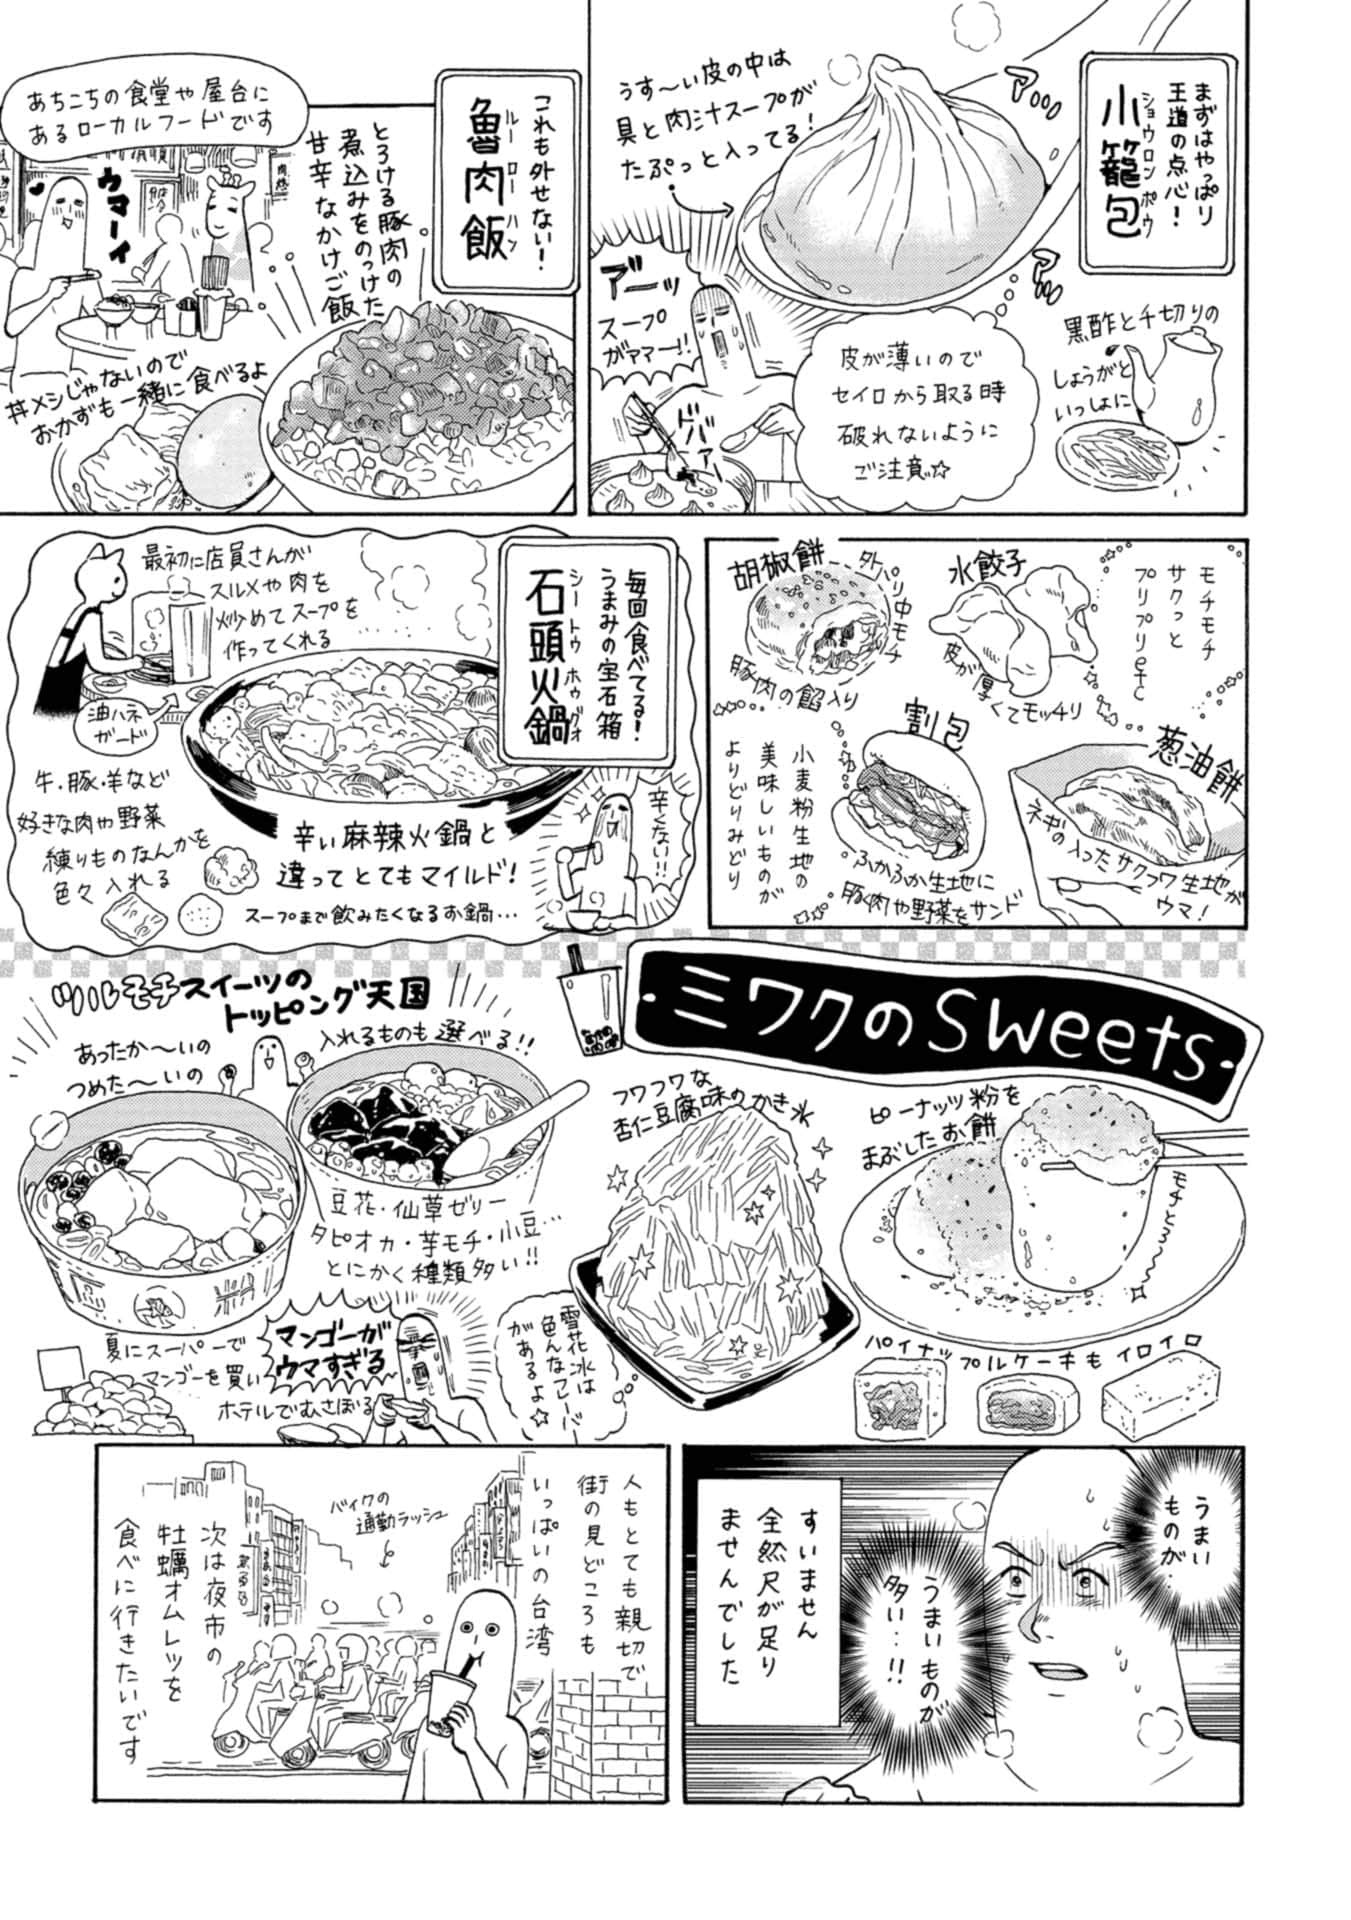 まずはやっぱり
王道の点心!
小籠包
ショウロンポウ
うす〜い皮の中は
具と肉汁スープが
たぷっと入ってる!
アツッ
アツッ
黒酢と千切りの
しょうがと
いっしょに
皮が薄いので
セイロから取る時
破れないように
ご注意☆
アーッ
スープ
がァマー!!
ドバァー
コレも外せない!
魯肉飯
ルーローハン
とろける豚肉の
煮込みをのっけた
甘辛なかけご飯
あちこちの食堂や屋台に
あるローカルフードです
ウマーイ
丼メシじゃないので
おかずも一緒に食べるよ
モチモチ
サクっと
プリプリetc
水餃子
皮が厚くてモッチリ
胡椒餅
外パリ中モチ
豚肉の餡入り
葱油餅
ネギの入ったサクフワ生地が
ウマ!
割包
ふかふか生地に
豚肉や野菜をサンド
小麦粉生地の
美味しいものが
よりどりみどり
毎回食べてる!
うまみの宝石箱
石頭火鍋
シートウホゥグオ
最初に店員さんが
スルメや肉を
炒めてスープを
作ってくれる
油ハネ
ガード
牛・豚・羊など
好きな肉や野菜
練りものなんかを
色々入れる
辛い麻辣火鍋と
違ってとてもマイルド!
スープまで飲みたくなるお鍋…
辛くない!!
ミワクのSweets
ツルモチスイーツの
トッピング天国
あったか〜いの
つめた〜いの
入れるものも選べる!!
豆花・仙草ゼリー
タピオカ・芋モチ・小豆…
とにかく種類多い!!
フワフワな
杏仁豆腐味のかき氷
雪花冰は
色んなフレーバー
があるよ☆
ピーナッツ粉を
まぶしたお餅
モチと〜
パイナップルケーキもイロイロ
夏にスーパーで
マンゴーを買い
ホテルでむさぼる
マンゴーが
ウマすぎる
うまい
ものが…
うまいものが
多い…!!
すいません
全然尺が足り
ませんでした
人もとても親切で
街の見どころも
いっぱいの台湾
バイクの
通勤ラッシュ
次は夜市の
牡蠣オムレツを
食べに行きたいです